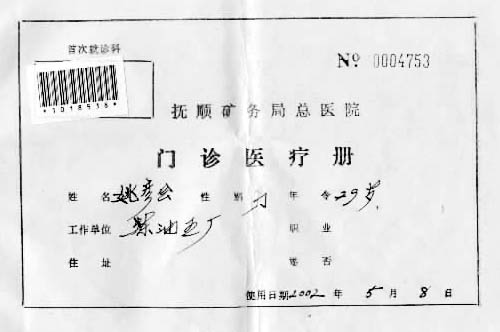 首次就诊科
№ 0004753
*1018518*
抚顺矿务局总医院
门诊医疗册
姓名 姚彦会 性别 年令 29岁
工作单位 炼油五厂 职业
住址 婚否
使用日期2002年5月8日